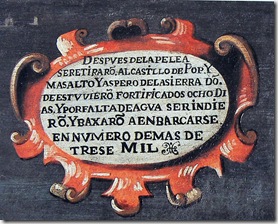 DESPVES DE LA PELEA
SE RETIRARŌ, AL CASTLLO DE POP, Y
MAS ALTO Y ASPERO DE LA SIERRA DŌ.
DE ESTVVIERŌ FORTIFICADOS OCHO DI
AS, Y POR FALTA DE AGVA SE RINDIE
RŌ, Y BAXARŌ A ENBARCARSE.
EN NVMERO DE MAS DE
TRESE MIL